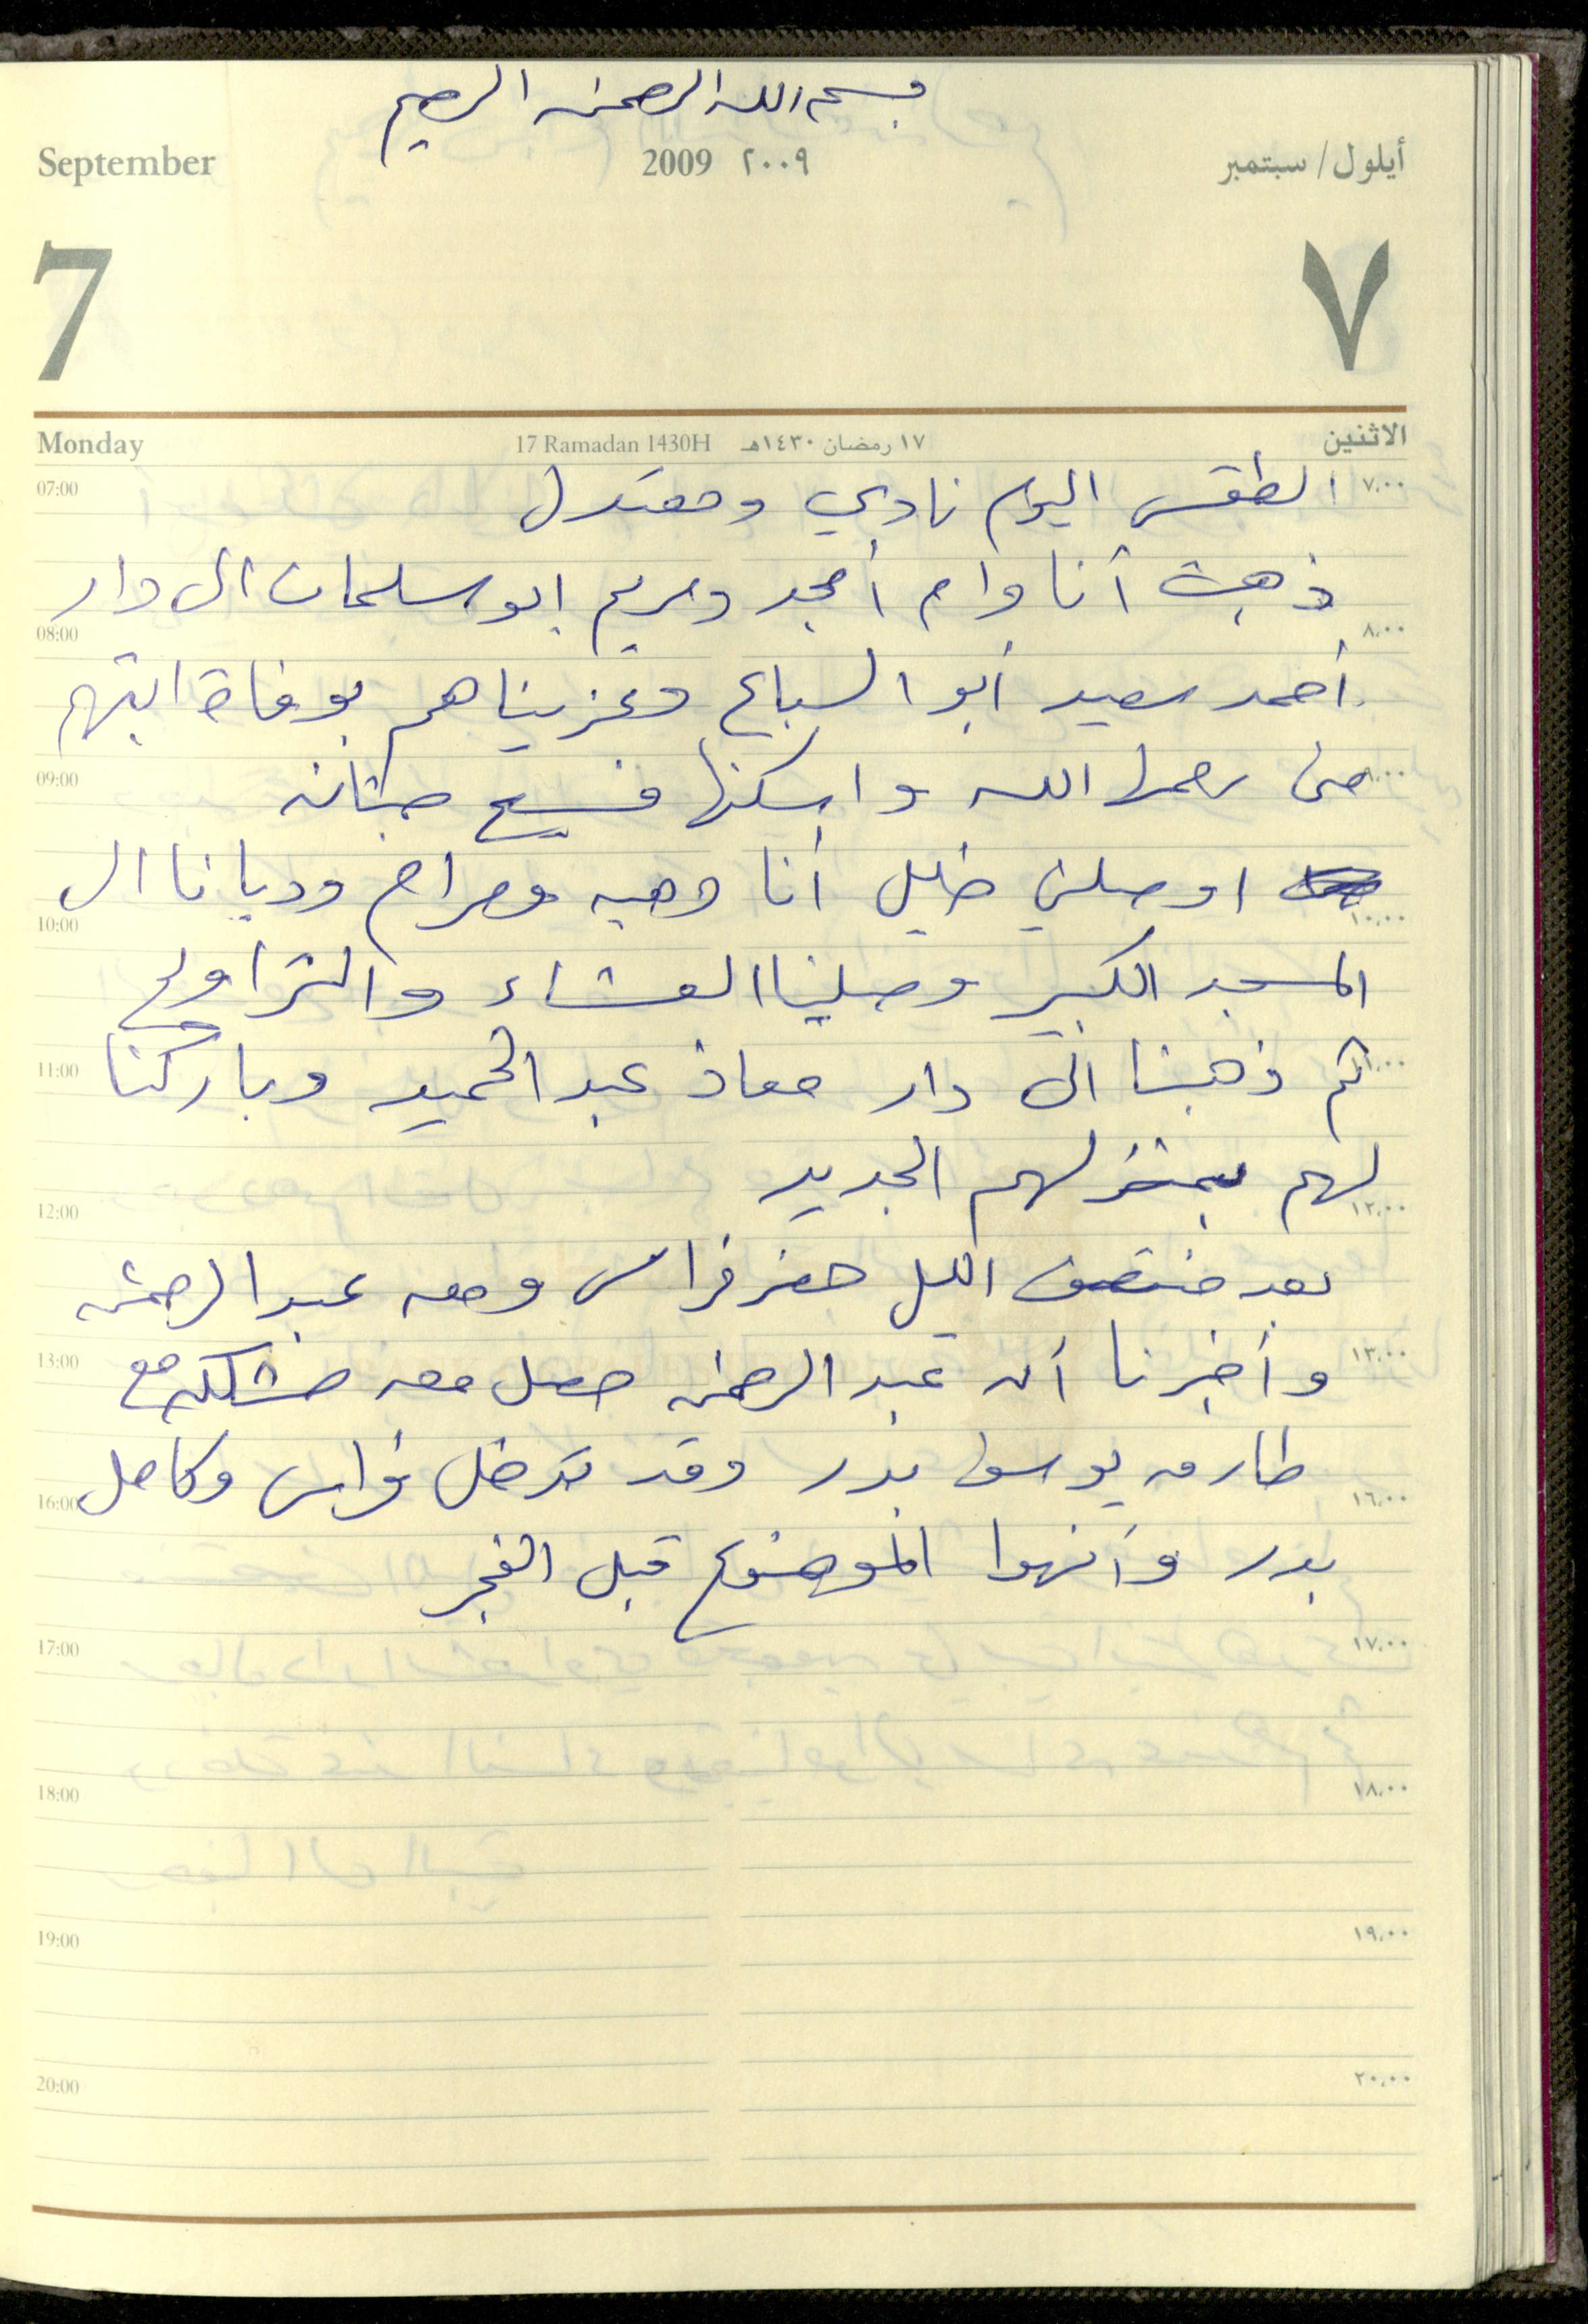 بسم الله الرحمن الرحيم
September 2009 ٢٠٠٩ أيلول/سبتمبر
7 ٧
Monday 17 Ramadan 1430H ١٧ رمضان ١٤٣٠هـ الاثنين
07:00 الطقس اليوم نادي ومعتدل ٧,٠٠
ذهبت أنا وام أمجد ومريم ابو سلمان الى دار
08:00 ٨,٠٠
أحمد سعيد أبو السباع وعزيناهم بوفاة ابنتهم
09:00 منى رحمها الله واسكنها فسيح جناته ٩,٠٠
اوصلني خليل أنا وهبه ومرام وديانا الى
10:00 ١٠,٠٠
المسجد الكبير وصلينا العشاء والتراويح
11:00 ثم ذهبنا الى دار معاذ عبد الحميد وباركنا ١١,٠٠
لهم بمنزلهم الجديد
12:00 ١٢,٠٠
بعد منتصف الليل حضر فراس ومعه عبد الرحمن
13:00 وأخبرنا أن عبد الرحمن حصل معه مشكله مع ١٣,٠٠
طارق يوسف بدر وقد تدخل فراس وكامل
16:00 ١٦,٠٠
بدر وأنهوا الموضوع قبل الفجر
17:00 ١٧,٠٠
18:00 ١٨,٠٠
19:00 ١٩,٠٠
20:00 ٢٠,٠٠